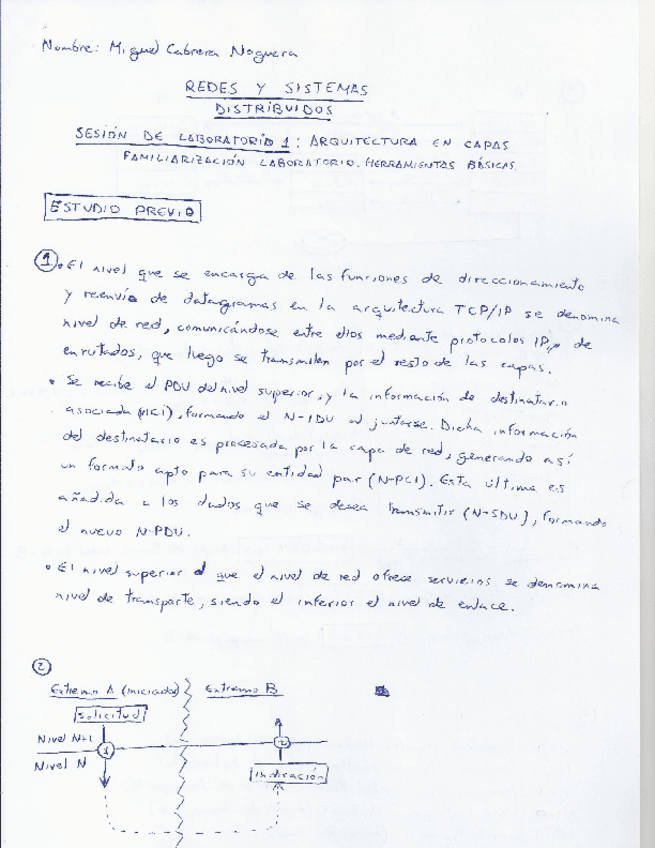 Nombre: Miguel Cabrera Noguera
REDES Y SISTEMAS
DISTRIBUIDOS
SESIÓN DE LABORATORIO 1: ARQUITECTURA EN CAPAS
FAMILIARIZACIÓN LABORATORIO. HERRAMIENTAS BÁSICAS.
ESTUDIO PREVIO
1 • El nivel que se encarga de las funciones de direccionamiento
y reenvío de datagramas en la arquitectura TCP/IP se denomina
nivel de red, comunicándose entre ellos mediante protocolos IP, de
enrutados, que luego se transmiten por el resto de las capas.
• Se recibe el PDU del nivel superior, y la información de destinatario
asociada (ICI), formando el N-IDU al juntarse. Dicha información
del destinatario es procesada por la capa de red, generando así
un formato apto para su entidad par (N-PCI). Esta última es
añadida a los dados que se desea transmitir (N-SDU), formando
el nuevo N-PDU.
• El nivel superior al que el nivel de red ofrece servicios se denomina
nivel de transporte, siendo el inferior el nivel de enlace.
2
Extremo A (iniciador) Extremo B
Solicitud
Nivel N+1
1 2
Nivel N
Indicación